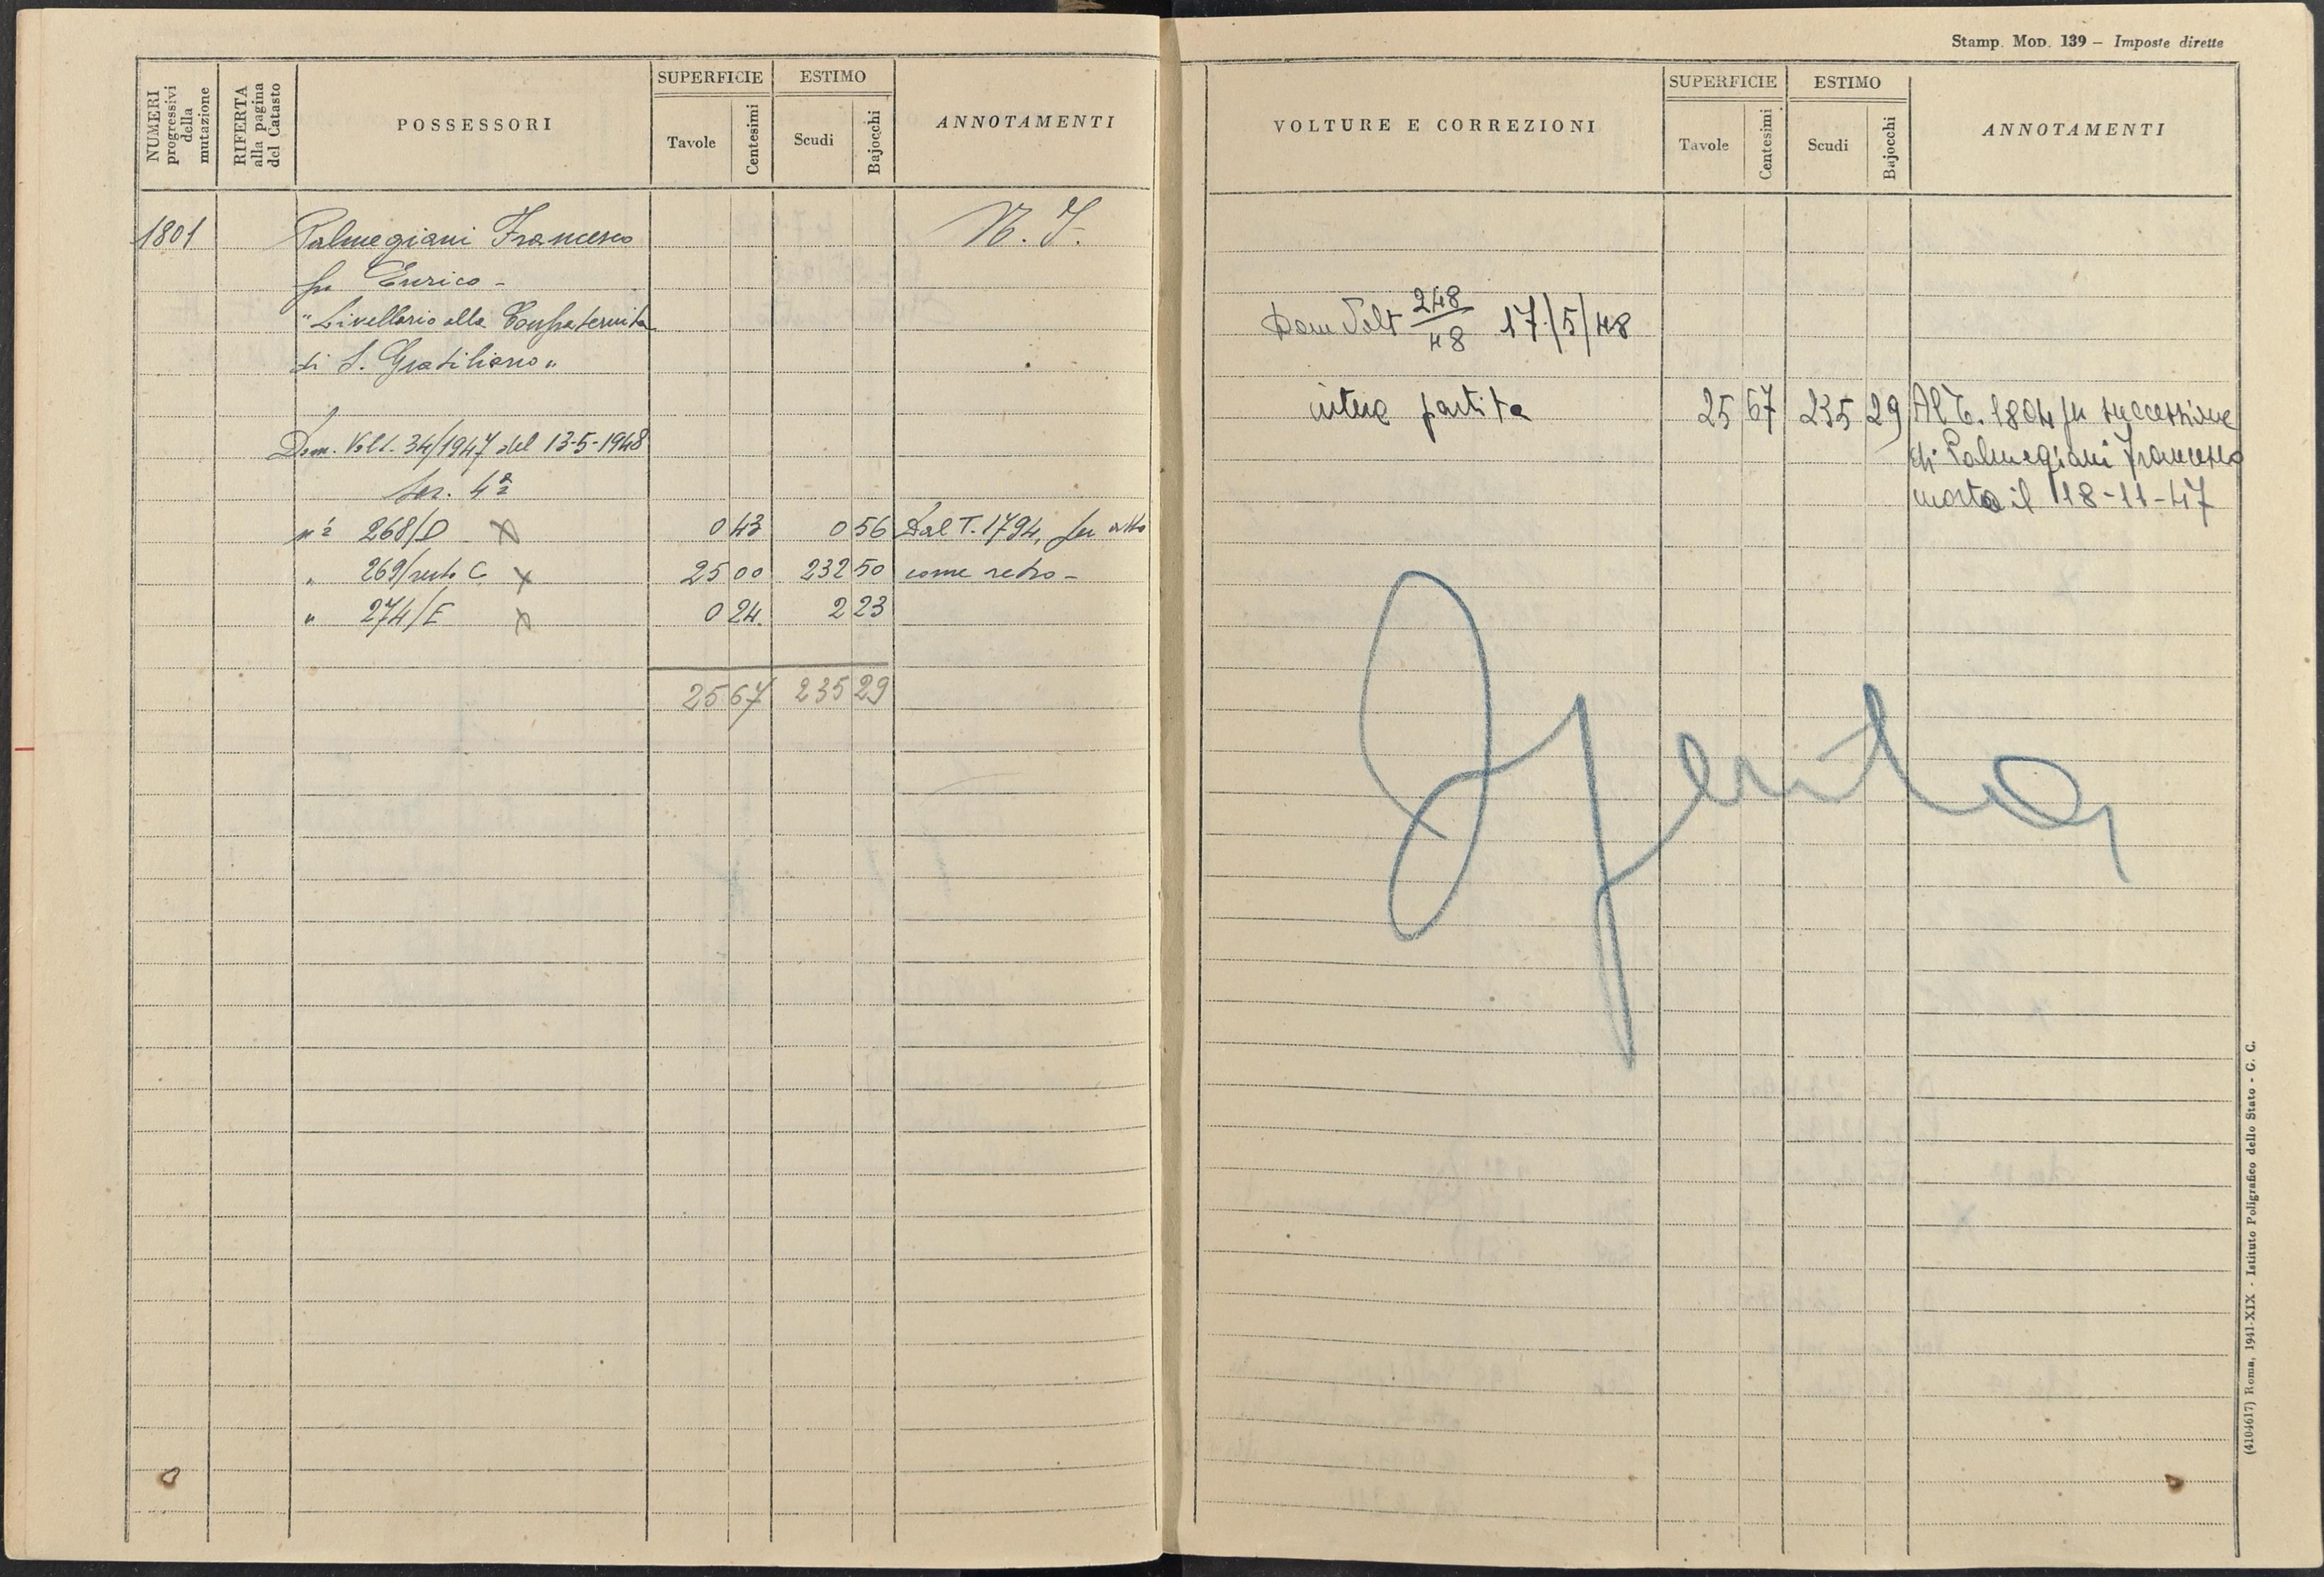 NUMERI progressivi della mutazione
RIFERTA alla pagina del Catasto
POSSESSORI
SUPERFICIE
Tavole
Centesimi
ESTIMO
Scudi
Bajocchi
ANNOTAMENTI
1801 Palmegiani Francesco
fu Enrico -
"Livellario alla Confraternita
di S. Gratiliano"
Dom. Volt. 34/1947 del 13-5-1948
Sez. 4ª
nº 268/D 0 43 0 56 Dal T. 1794, per atto
" 269/resto C 25 00 232 50 come retro -
" 274/E 0 24. 2 23
25 67 235 29
Stamp. Mod. 139 – Imposte dirette
VOLTURE E CORREZIONI
SUPERFICIE
Tavole
Centesimi
ESTIMO
Scudi
Bajocchi
ANNOTAMENTI
Dom Volt 248/48 17/5/48
intera partita 25 67 235 29 Al T. 1804 per successione
di Palmegiani Francesco
morto il 18-11-47
(4104617) Roma, 1941-XIX - Istituto Poligrafico dello Stato - G. C.